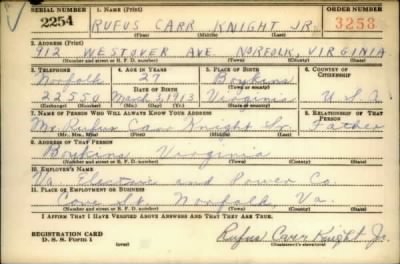 SERIAL NUMBER 1. NAME (Print) ORDER NUMBER
2254 RUFUS CARR KNIGHT JR. 3253
(First) (Middle) (Last)
2. ADDRESS (Print)
912 WESTOVER AVE. NORFOLK, VIRGINIA
(Number and street or R. F. D. number) (Town) (County) (State)
3. TELEPHONE 4. AGE IN YEARS 5. PLACE OF BIRTH 6. COUNTRY OF CITIZENSHIP
Norfolk 27 Boykins
DATE OF BIRTH (Town or county)
22550 March 1913 Virginia U S A
(Exchange) (Number) (Mo.) (Day) (Yr.) (State or country)
7. NAME OF PERSON WHO WILL ALWAYS KNOW YOUR ADDRESS 8. RELATIONSHIP OF THAT PERSON
Mr. Rufus Carr Knight Sr. Father
(Mr., Mrs., Miss) (First) (Middle) (Last)
9. ADDRESS OF THAT PERSON
Boykins Virginia
(Number and street or R. F. D. number) (Town) (County) (State)
10. EMPLOYER'S NAME
Va. Electric and Power Co.
11. PLACE OF EMPLOYMENT OR BUSINESS
Cove St. Norfolk, Va.
(Number and street or R. F. D. number) (Town) (County) (State)
I AFFIRM THAT I HAVE VERIFIED ABOVE ANSWERS AND THAT THEY ARE TRUE.
REGISTRATION CARD
D. S. S. Form 1 Rufus Carr Knight Jr.
(Registrant's signature)